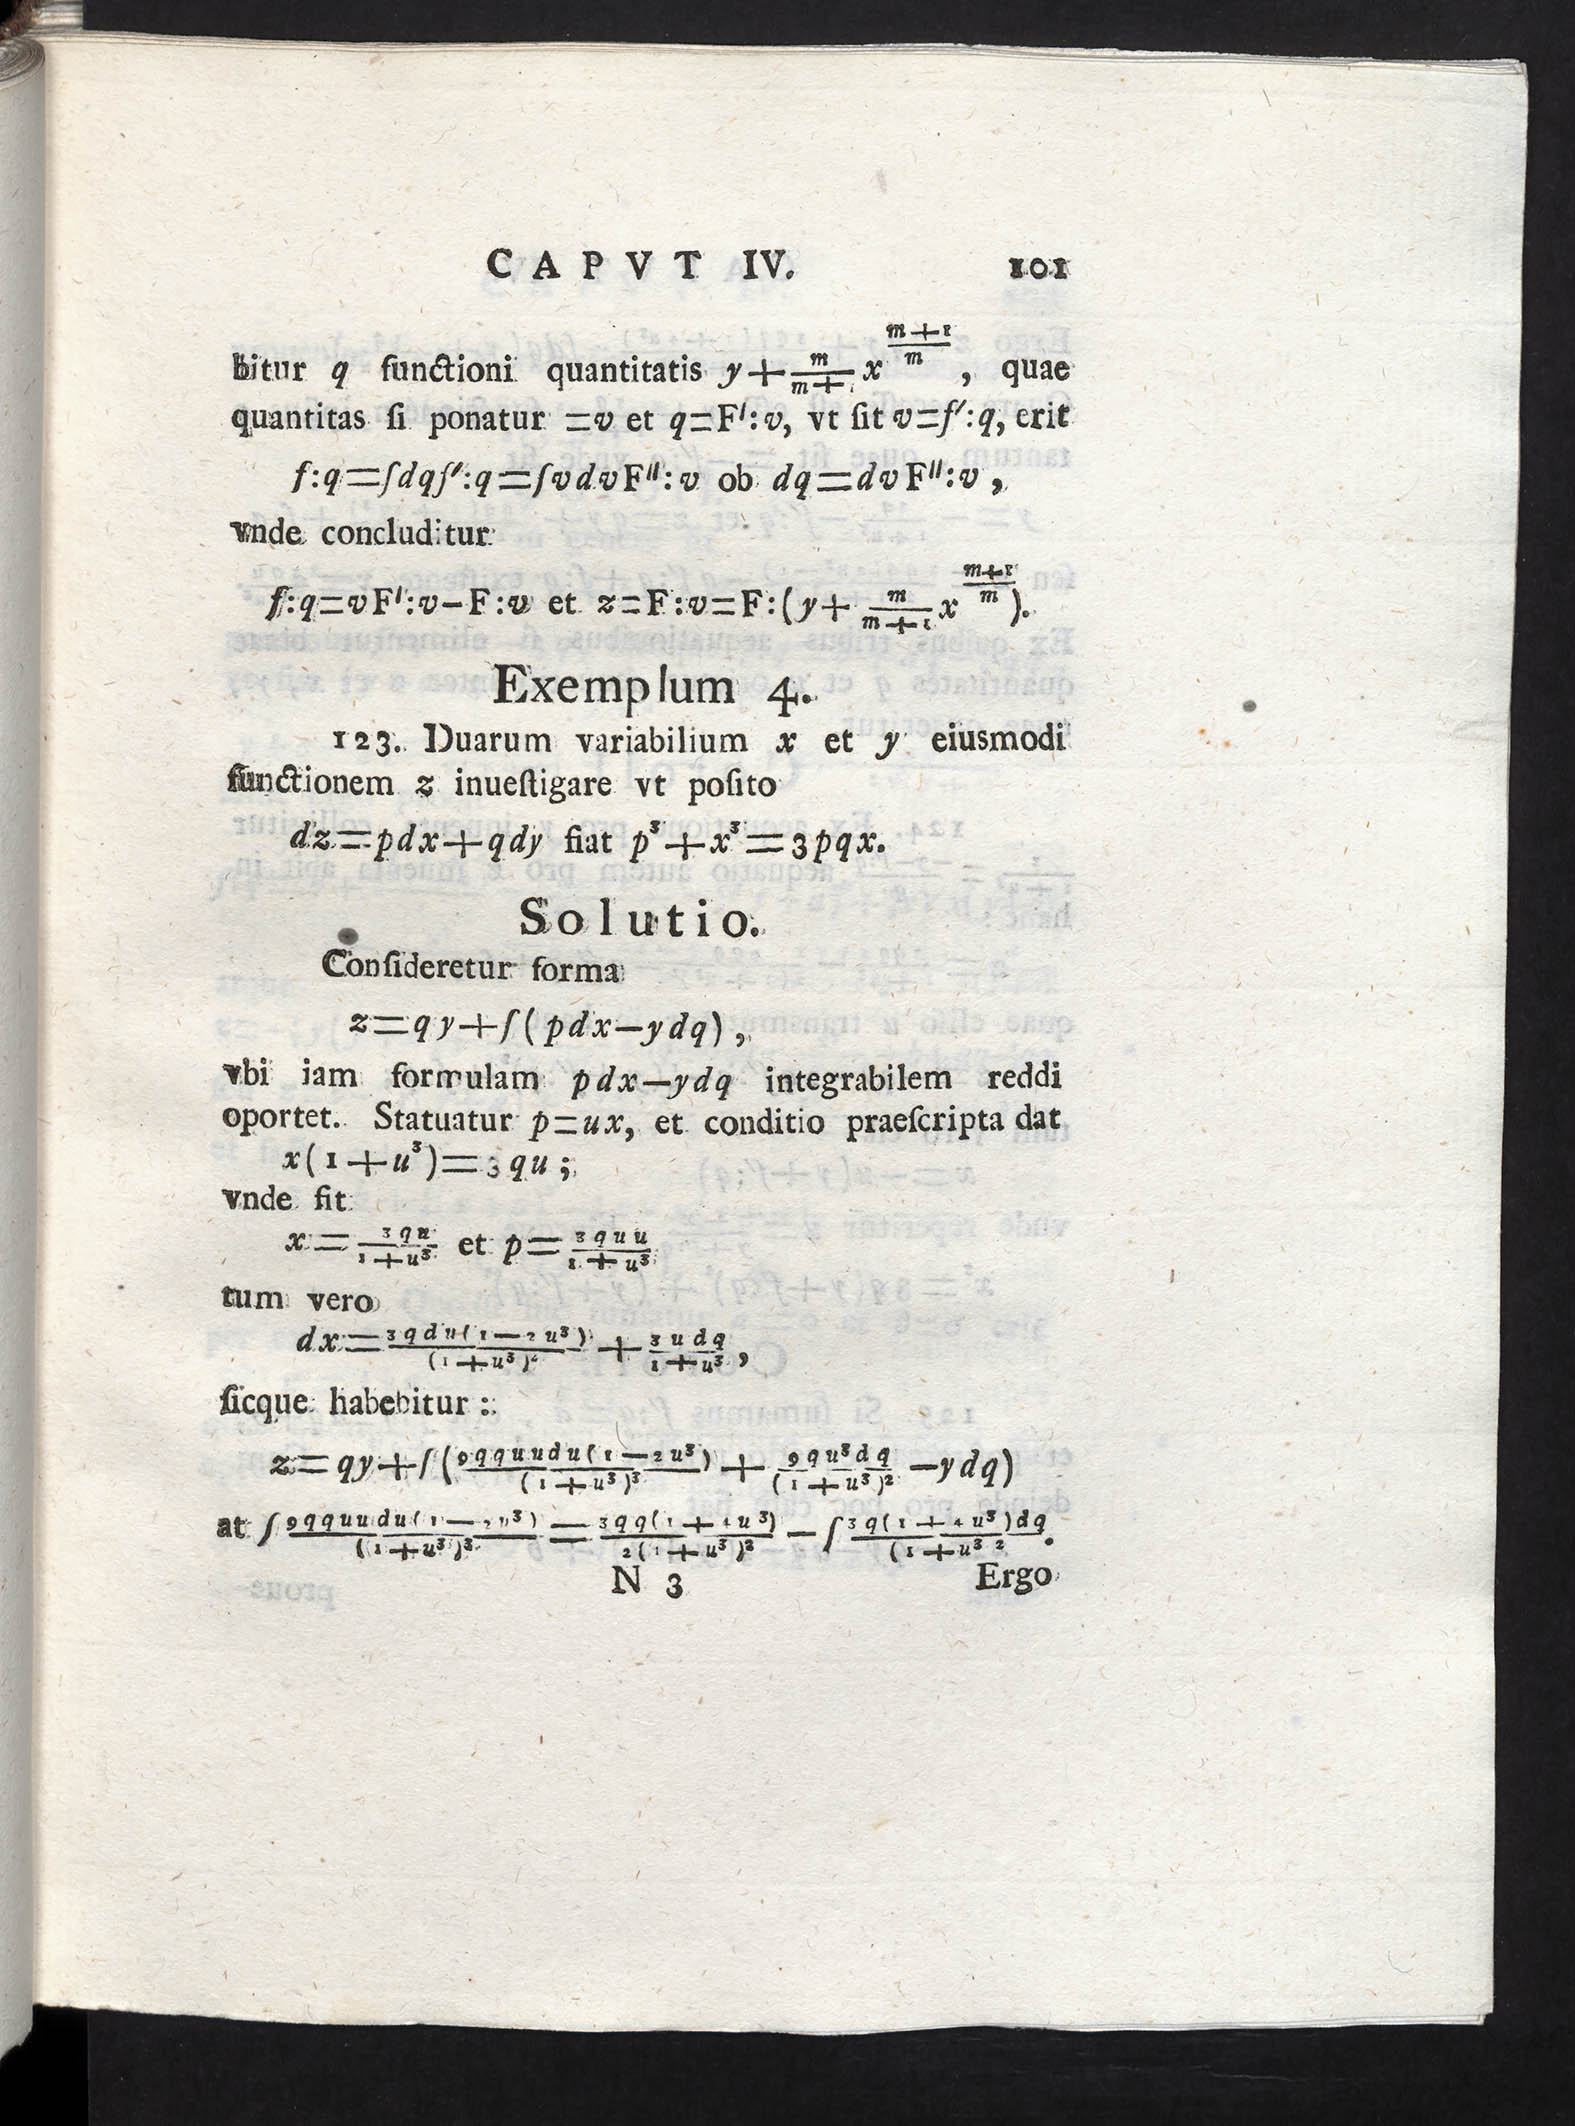 CAPVT IV. 101
bitur q functioni quantitatis y+\frac{m}{m+1}x^{\frac{m+1}{m}}, quae
quantitas ſi ponatur =v et q=F′:v, vt ſit v=f′:q, erit
f:q=∫dqf′:q=∫vdvF″:v ob dq=dvF″:v,
vnde concluditur
f:q=vF′:v−F:v et z=F:v=F:(y+\frac{m}{m+1}x^{\frac{m+1}{m}}).
Exemplum 4.
123. Duarum variabilium x et y eiusmodi
functionem z inueſtigare vt poſito
dz=pdx+qdy fiat p³+x³=3pqx.
Solutio.
Conſideretur forma
z=qy+∫(pdx−ydq),
vbi iam formulam pdx−ydq integrabilem reddi
oportet. Statuatur p=ux, et conditio praeſcripta dat
x(1+u³)=3qu;
vnde fit
x=\frac{3qu}{1+u³} et p=\frac{3quu}{1+u³}
tum vero
dx=\frac{3qdu(1−2u³)}{(1+u³)²}+\frac{3udq}{1+u³},
ſicque habebitur:
z=qy+∫(\frac{9qquudu(1−2u³)}{(1+u³)³}+\frac{9qu³dq}{(1+u³)²}−ydq)
at ∫\frac{9qquudu(1−2u³)}{(1+u³)³}=\frac{3qq(1+4u³)}{2(1+u³)²}−∫\frac{3q(1+4u³)dq}{(1+u³ ²}.
N 3 Ergo